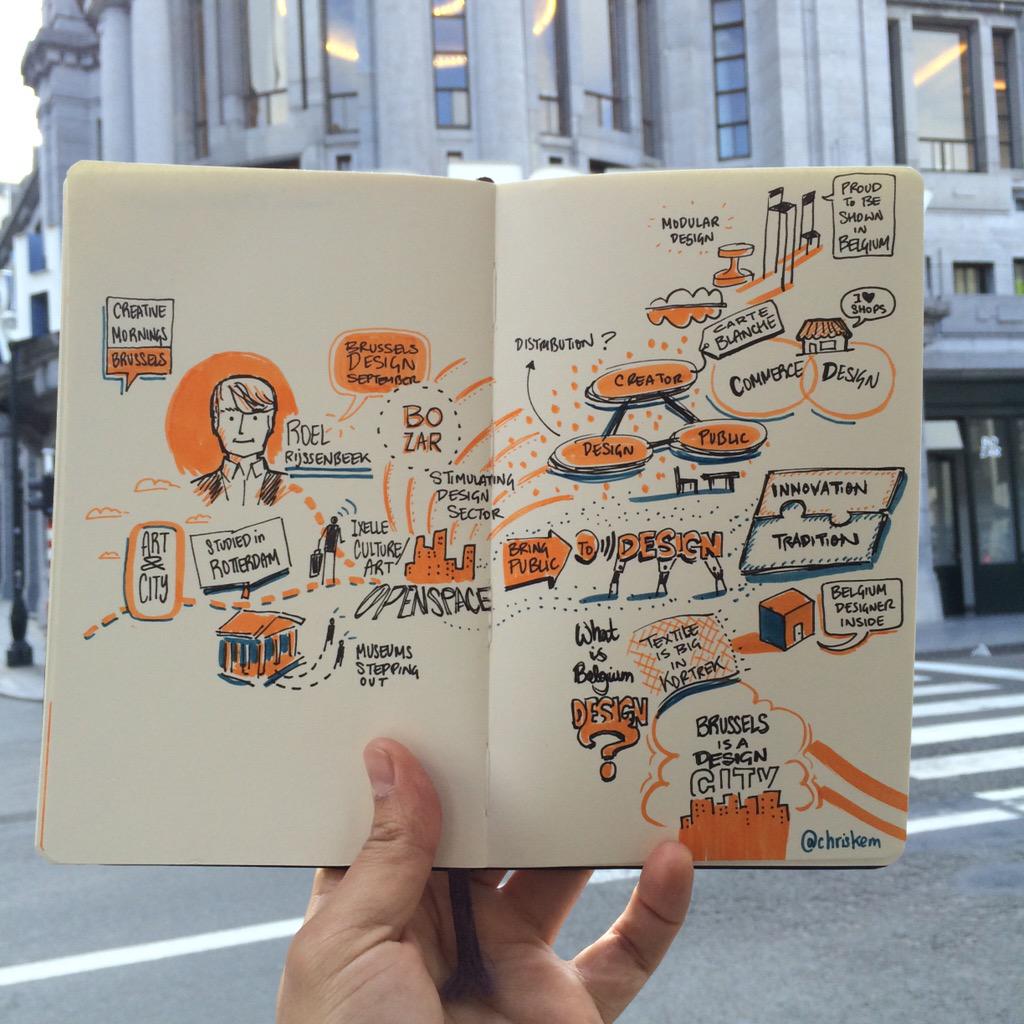 CREATIVE
MORNINGS
BRUSSELS
BRUSSELS
DESIGN
SEPTEMBER
ROEL
RIJSSENBEEK
BO
ZAR
STIMULATING
DESIGN
SECTOR
ART
&
CITY
STUDIED in
ROTTERDAM
IXELLE
CULTURE/
ART/
OPENSPACE
MUSEUMS
STEPPING
OUT
MODULAR
DESIGN
PROUD
TO BE
SHOWN
IN
BELGIUM
I ♥
SHOPS
CARTE
BLANCHE
DISTRIBUTION ?
CREATOR
COMMERCE
DESIGN
DESIGN
PUBLIC
INNOVATION
TRADITION
BRING
PUBLIC
TO
DESIGN
BELGIUM
DESIGNER
INSIDE
What
is
Belgium
DESIGN
?
TEXTILE
IS BIG
IN
KORTREK
BRUSSELS
IS A
DESIGN
CITY
@chriskem